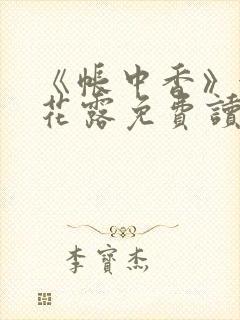 《帳中香》
花露免費讀
李寶杰